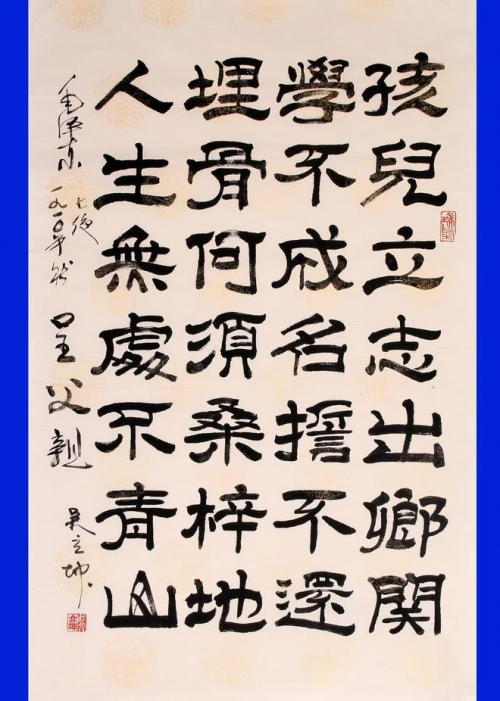 孩兒立志出鄉關
學不成名誓不還
埋骨何須桑梓地
人生無處不青山
毛泽东七绝
一九一〇年秋
呈父親
吴立坤